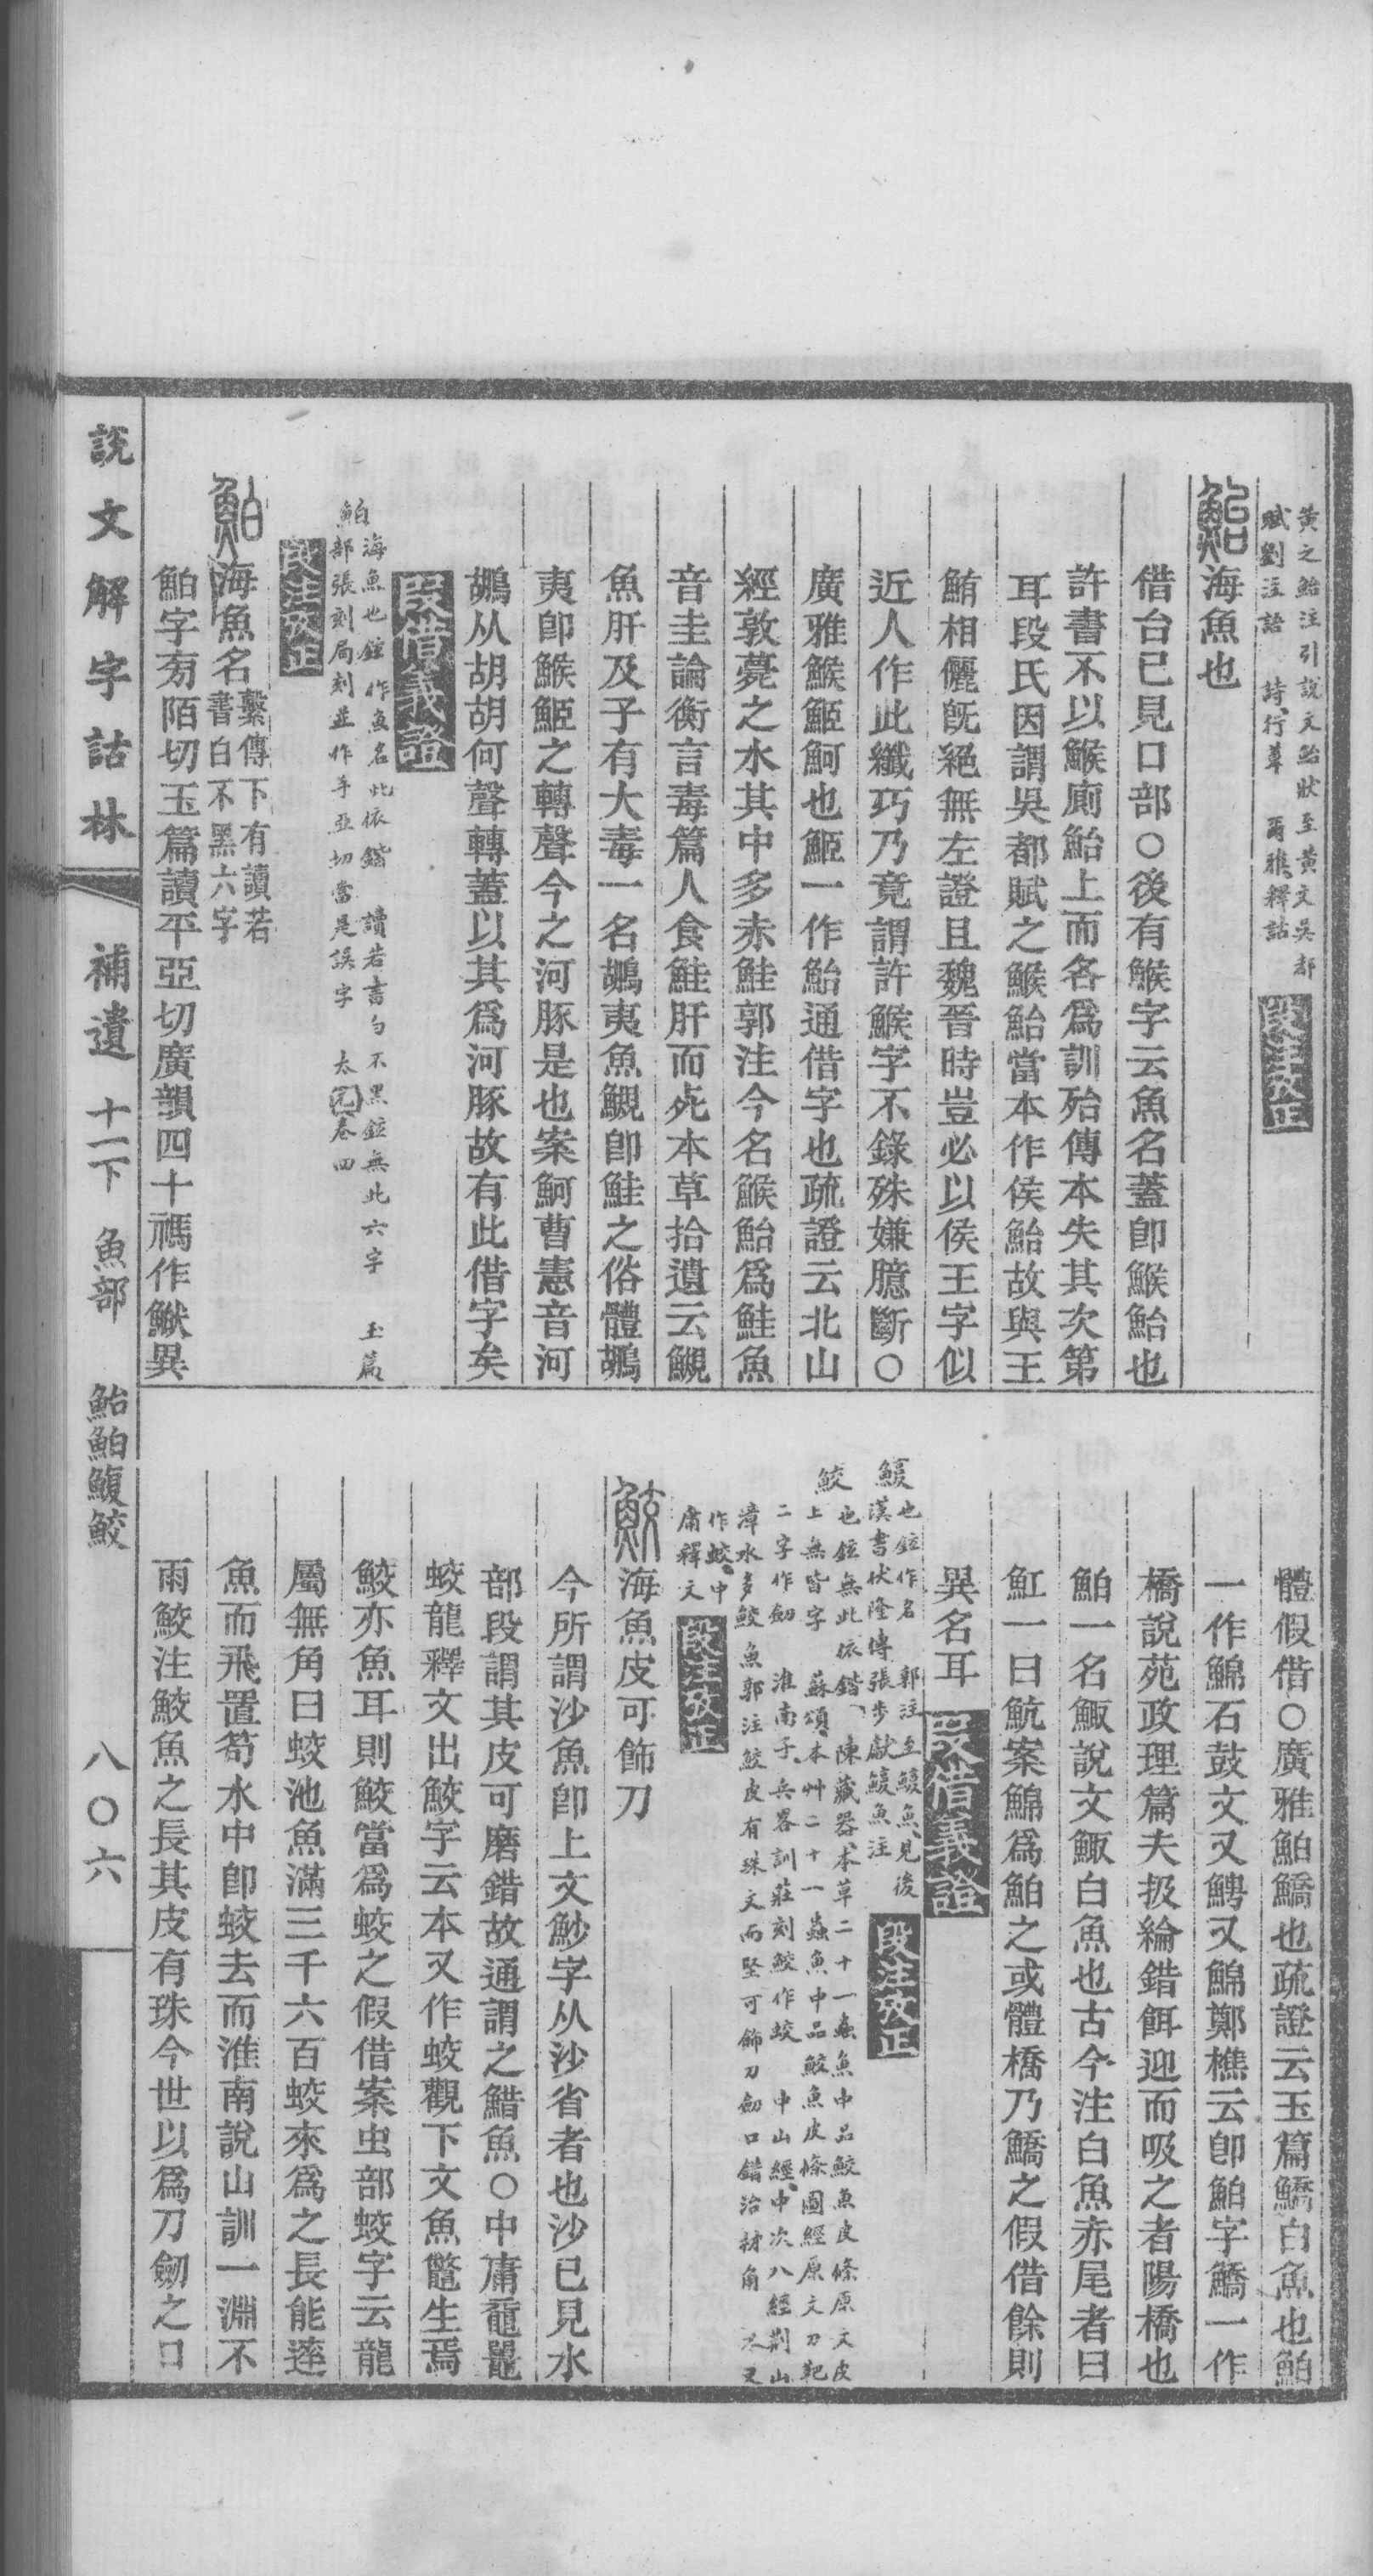 黃之鮐注引說文鮐狀至黃文吳都
賦劉注語　詩行葦　爾雅釋詁　段注攷正
鮐海魚也
借台已見口部○後有鯸字云魚名蓋卽鯸鮐也
許書不以鯸廁鮐上而各爲訓殆傳本失其次第
耳段氏因謂吳都賦之鯸鮐當本作侯鮐故與王
鮪相儷旣絕無左證且魏晉時豈必以侯王字似
近人作此纖巧乃竟謂許鯸字不錄殊嫌臆斷○
廣雅鯸䱌魺也䱌一作鮐通借字也疏證云北山
經敦薨之水其中多赤鮭郭注今名鯸鮐爲鮭魚
音圭論衡言毒篇人食鮭肝而死本草拾遺云鯢
魚肝及子有大毒一名鶘夷魚鯢卽鮭之俗體鶘
夷卽鯸䱌之轉聲今之河豚是也案魺曹憲音河
鶘从胡胡何聲轉蓋以其爲河豚故有此借字矣
段借義證
鮊海魚也鉉作魚名此依鍇　讀若書白不黑鉉無此六字　玉篇
部張刻局刻並作乎亞切當是誤字　太元卷四
段注攷正
鮊海魚名繫傳下有讀若書白不黑六字
鮊字匇陌切玉篇讀平亞切廣韻四十禡作䱋異
體假借○廣雅鮊鱎也疏證云玉篇鱎白魚也鮊
一作鯿石鼓文又鰐又鯿鄭樵云卽鮊字鱎一作
橋說苑政理篇夫扱綸錯餌迎而吸之者陽橋也
鮊一名鮍說文鮍白魚也古今注白魚赤尾者曰
魟一曰魧案鯿爲鮊之或體橋乃鱎之假借餘則
異名耳　段借義證
鰒也鉉作名　郭注至鰒魚見後
漢書伏隆傳張步獻鰒魚注　段注攷正
鮫也鉉無此依鍇　陳藏器本草二十一蟲魚中品鮫魚皮條原文皮
上無皆字　蘇頌本艸二十一蟲魚中品鮫魚皮條圖經原文刀靶
二字作劒　淮南子兵畧訓莊刻鮫作蛟　中山經中次八經荆山
漳水多鮫魚郭注鮫皮有珠文而堅可飾刀劒口錯治材角　又
作蛟中
庸釋文　段注攷正
鮫海魚皮可飾刀
今所謂沙魚卽上文魦字从沙省者也沙已見水
部段謂其皮可磨錯故通謂之䱜魚○中庸黿鼉
蛟龍釋文出鮫字云本又作蛟觀下文魚鼈生焉
鮫亦魚耳則鮫當爲蛟之假借案虫部蛟字云龍
屬無角曰蛟池魚滿三千六百蛟來爲之長能逵
魚而飛置笱水中卽蛟去而淮南說山訓一淵不
兩鮫注鮫魚之長其皮有珠今世以爲刀劒之口
說文解字詁林　補遺　十一下　魚部　鮐鮊鰒鮫　八○六